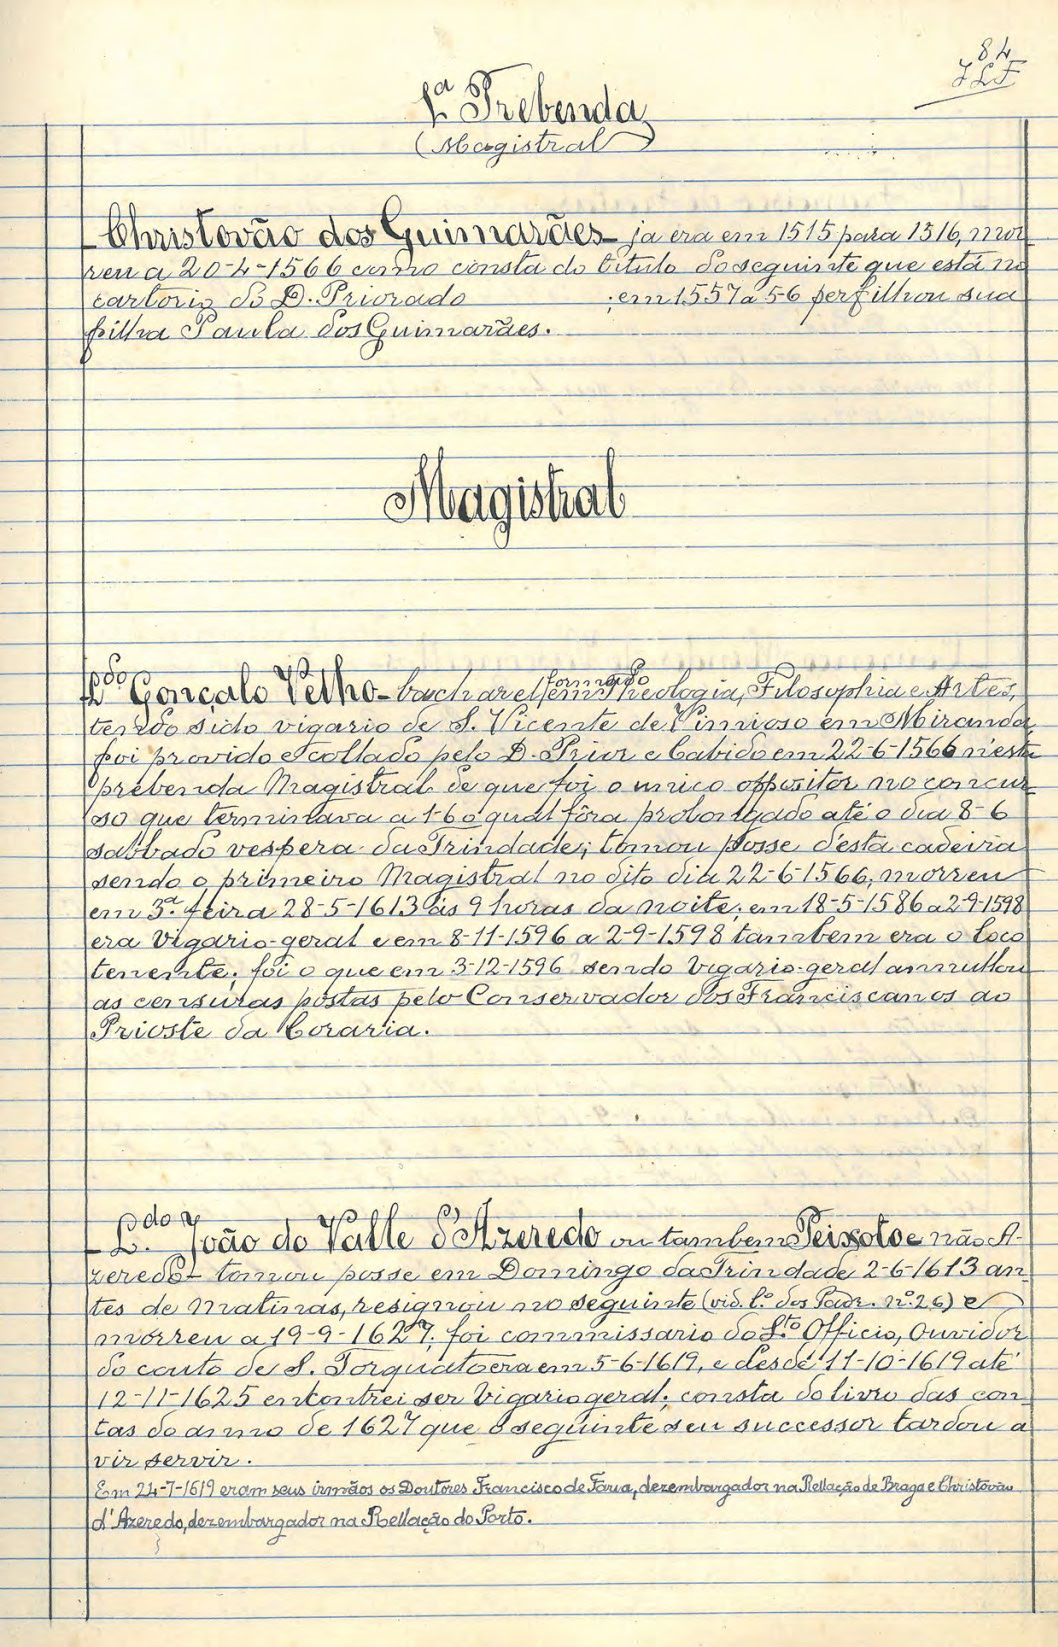 84
JLF
1ª Prebenda
(Magistral)
Christovão dos Guimarães - ja era em 1515 para 1516, mor
reu a 20-4-1566 como consta do titulo do seguinte que está no
cartorio do D. Priorado ; em 1557 a 5-6 perfilhou sua
filha Paula dos Guimarães.
Magistral
L.do Gonçalo Velho - bacharel formado em Theologia, Filosophia e Artes,
tendo sido vigario de S. Vicente de Vimioso em Miranda,
foi provido e collado pelo D. Prior e Cabido em 22-6-1566 n'esta
prebenda Magistral de que foi o unico oppositor no concur
so que terminava a 1-6 o qual fôra prolongado até o dia 8-6
sabbado vespera da Trindade; tomou posse d'esta cadeira
sendo o primeiro Magistral no dito dia 22-6-1566, morreu
em 3ª feira 28-5-1613 ás 9 horas da noite; em 18-5-1586 a 2-9-1598
era Vigario-geral e em 8-11-1596 a 2-9-1598 tambem era o loco
tenente; foi o que em 3-12-1596 sendo Vigario-geral annullou
as censuras postas pelo Conservador dos Franciscanos ao
Prioste da Coraria.
- L.do João do Valle d'Azeredo ou tambem Peixoto e não A-
zeredo - tomou posse em Domingo da Trindade 2-6-1613 an
tes de Matinas, resignou no seguinte (vid. l.º dos Padr. nº 26) e
morreu a 19-9-1627; foi commissario do S.to Officio, Ouvidor
do couto de S. Torquato era em 5-6-1619, e desde 11-10-1619 até
12-11-1625 encontrei ser Vigario geral; consta do livro das con
tas do anno de 1627 que o seguinte seu successor tardou a
vir servir.
Em 24-7-1619 eram seus irmãos os Doutores Francisco de Faria, dezembargador na Rellação de Braga e Christovão
d'Azeredo, dezembargador na Rellação do Porto.